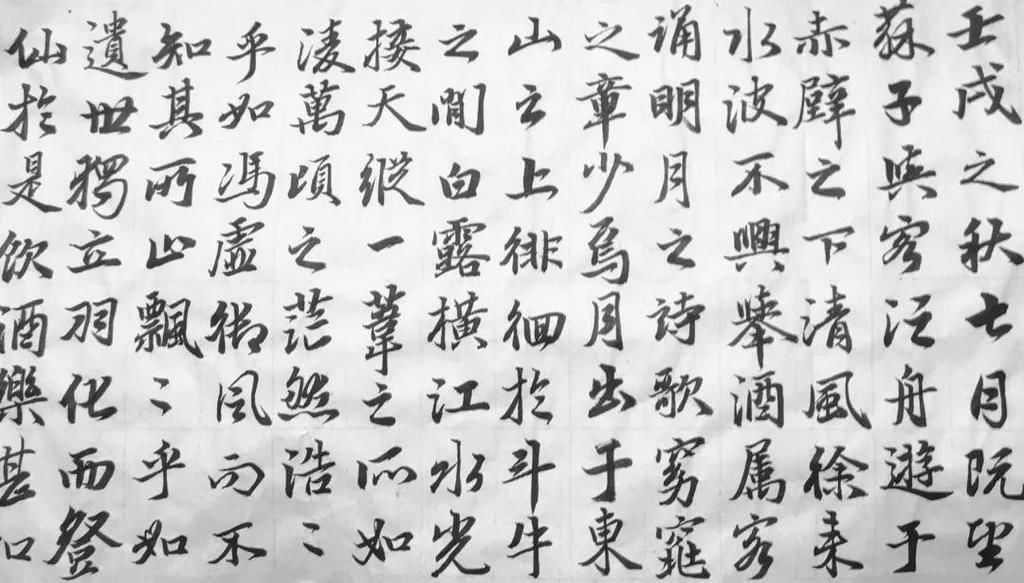 壬戌之秋七月既望
蘇子與客泛舟遊于
赤壁之下清風徐来
水波不興舉酒属客
誦明月之詩歌窈窕
之章少焉月出于東
山之上徘徊於斗牛
之間白露橫江水光
接天縱一葦之所如
淩萬頃之茫然浩〻
乎如馮虛御風而不
知其所止飄〻乎如
遺世獨立羽化而登
仙於是飲酒樂甚扣